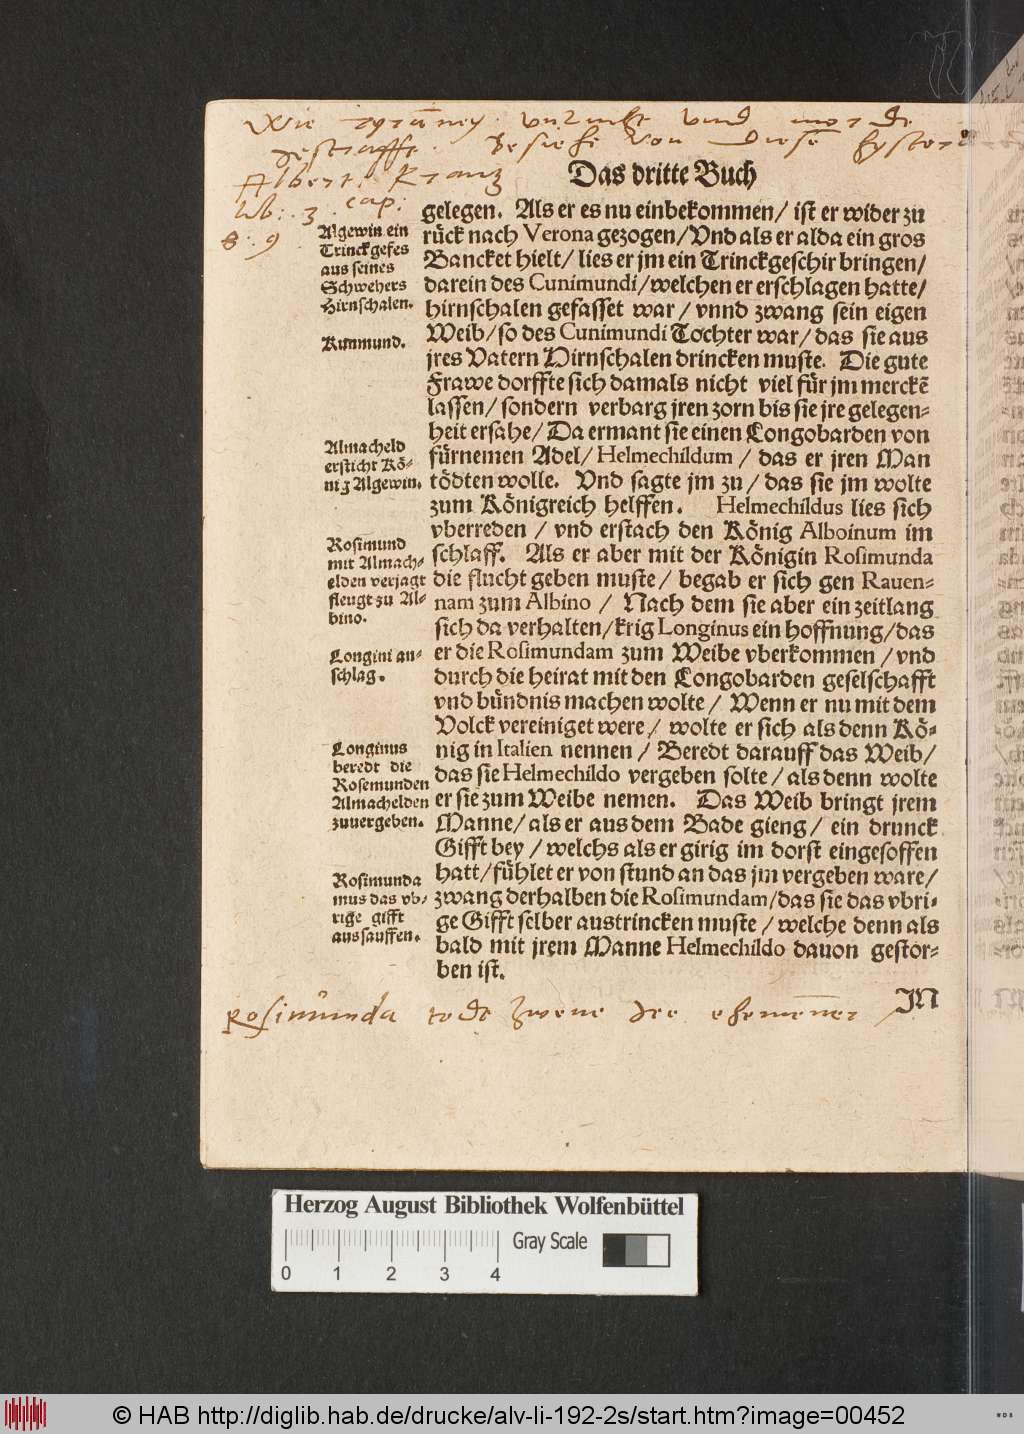 Wie tyranney. vnzucht vnd morde
gestrafft. Besiehe von diesē hystor
Albert. Kranz
lib: 3 cap:
8: 9
Das dritte Buch
gelegen. Als er es nu einbekommen/ ist er wider zu
rück nach Verona gezogen/Vnd als er alda ein gros
Bancket hielt/ lies er jm ein Trinckgeschir bringen/
darein des Cunimundi/welchen er erschlagen hatte/
hirnschalen gefasset war/ vnnd zwang sein eigen
Weib/so des Cunimundi Tochter war/das sie aus
jres Vatern Hirnschalen drincken muste. Die gute
Frawe dorffte sich damals nicht viel für jm merckē
lassen/sondern verbarg jren zorn bis sie jre gelegen=
heit ersahe/Da ermant sie einen Longobarden von
fürnemen Adel/Helmechildum / das er jren Man
tödten wolle. Vnd sagte jm zu/das sie jm wolte
zum Königreich helffen. Helmechildus lies sich
vberreden / vnd erstach den König Alboinum im
schlaff. Als er aber mit der Königin Rosimunda
die flucht geben muste/ begab er sich gen Rauen=
nam zum Albino / Nach dem sie aber ein zeitlang
sich da verhalten/krig Longinus ein hoffnung/das
er die Rosimundam zum Weibe vberkommen /vnd
durch die heirat mit den Longobarden geselschafft
vnd bündnis machen wolte/ Wenn er nu mit dem
Volck vereiniget were/ wolte er sich als denn Kö=
nig in Italien nennen / Beredt darauff das Weib/
das sie Helmechildo vergeben solte/als denn wolte
er sie zum Weibe nemen. Das Weib bringt jrem
Manne/als er aus dem Bade gieng/ ein drunck
Gifft bey /welchs als er girig im dorst eingesoffen
hatt/fühlet er von stund an das jm vergeben ware/
zwang derhalben die Rosimundam/das sie das vbri=
ge Gifft selber austrincken muste/welche denn als
bald mit jrem Manne Helmechildo dauon gestor=
ben ist.
JN
Algewin ein
Trinckgefes
aus seines
Schwehers
Hirnschalen.
Kunmund.
Almacheld
ersticht Kö=
nig Algewin.
Rosimund
mit Almach=
elden verjagt
fleugt zu Al=
bino.
Longini an=
schlag.
Longinus
beredt die
Rosemunden
Almachelden
zuuergeben.
Rosimunda
mus das vb=
rige gifft
aussauffen.
rosimunda todt zwene ire ehemenner
Herzog August Bibliothek Wolfenbüttel
Gray Scale
0 1 2 3 4
© HAB http://diglib.hab.de/drucke/alv-li-192-2s/start.htm?image=00452
WDB